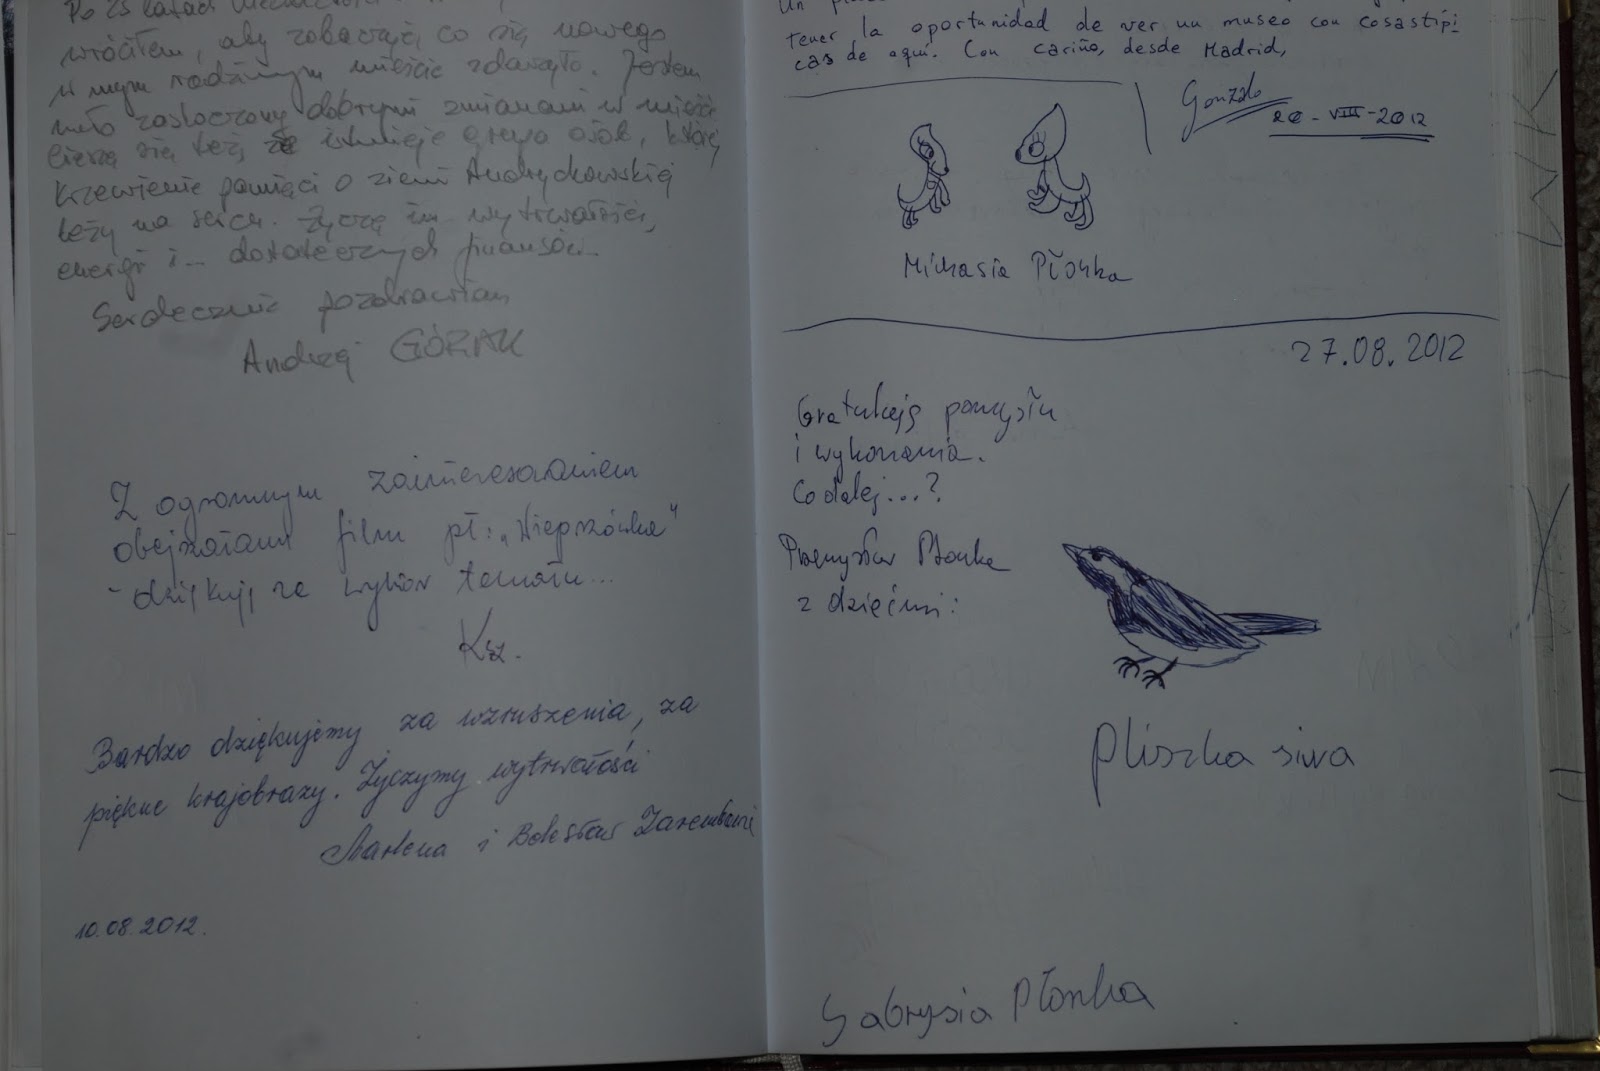 Po 25 latach
wróciłem, aby zobaczyć, co się nowego
w mym rodzinnym mieście zdarzyło. Jestem
miło zaskoczony dobrymi zmianami w mieście
Cieszę się też, że istnieje grupa osób, której
krzewienie pamięci o ziemi Andrychowskiej
leży na sercu. Życzę im wytrwałości,
energii i... dostatecznych finansów...
Serdecznie pozdrawiam
Andrzej GÓRAK
Z ogromnym zainteresowaniem
obejrzałam film pt: „Niepszówka"
- dziękuję za wybór tematu...
Ksz.
Bardzo dziękujemy za wzruszenia, za
piękne krajobrazy. Życzymy wytrwałości
Marlena i Bolesław Zarembowie
10.08.2012.
Un
tener la oportunidad de ver un museo con cosas típi
cas de aquí. Con cariño, desde Madrid,
Gonzalo
20-VIII-2012
Michasia Płonka
27.08.2012
Gratuluję pomysłu
i wykonania.
Co dalej...?
Przemysław Płonka
z dziećmi:
Pliszka siwa
Gabrysia Płonka